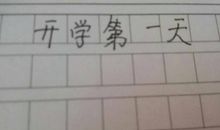 开学第一天